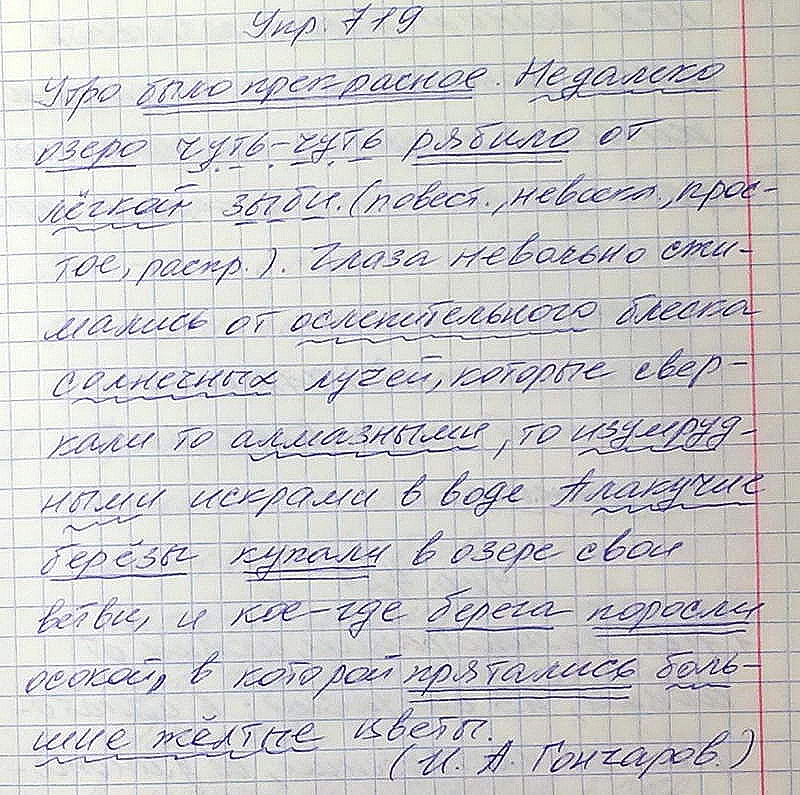 Упр. 719
Утро было прекрасное. Недалеко
озеро чуть-чуть рябило от
лёгкой зыби. (повест., невоскл., прос-
тое, распр.). Глаза невольно сжи-
мались от ослепительного блеска
солнечных лучей, которые свер-
кали то алмазными, то изумруд-
ными искрами в воде. Плакучие
берёзы купали в озере свои
ветви, и кое-где берега поросли
осокой, в которой прятались боль-
шие жёлтые цветы.
(И. А. Гончаров.)